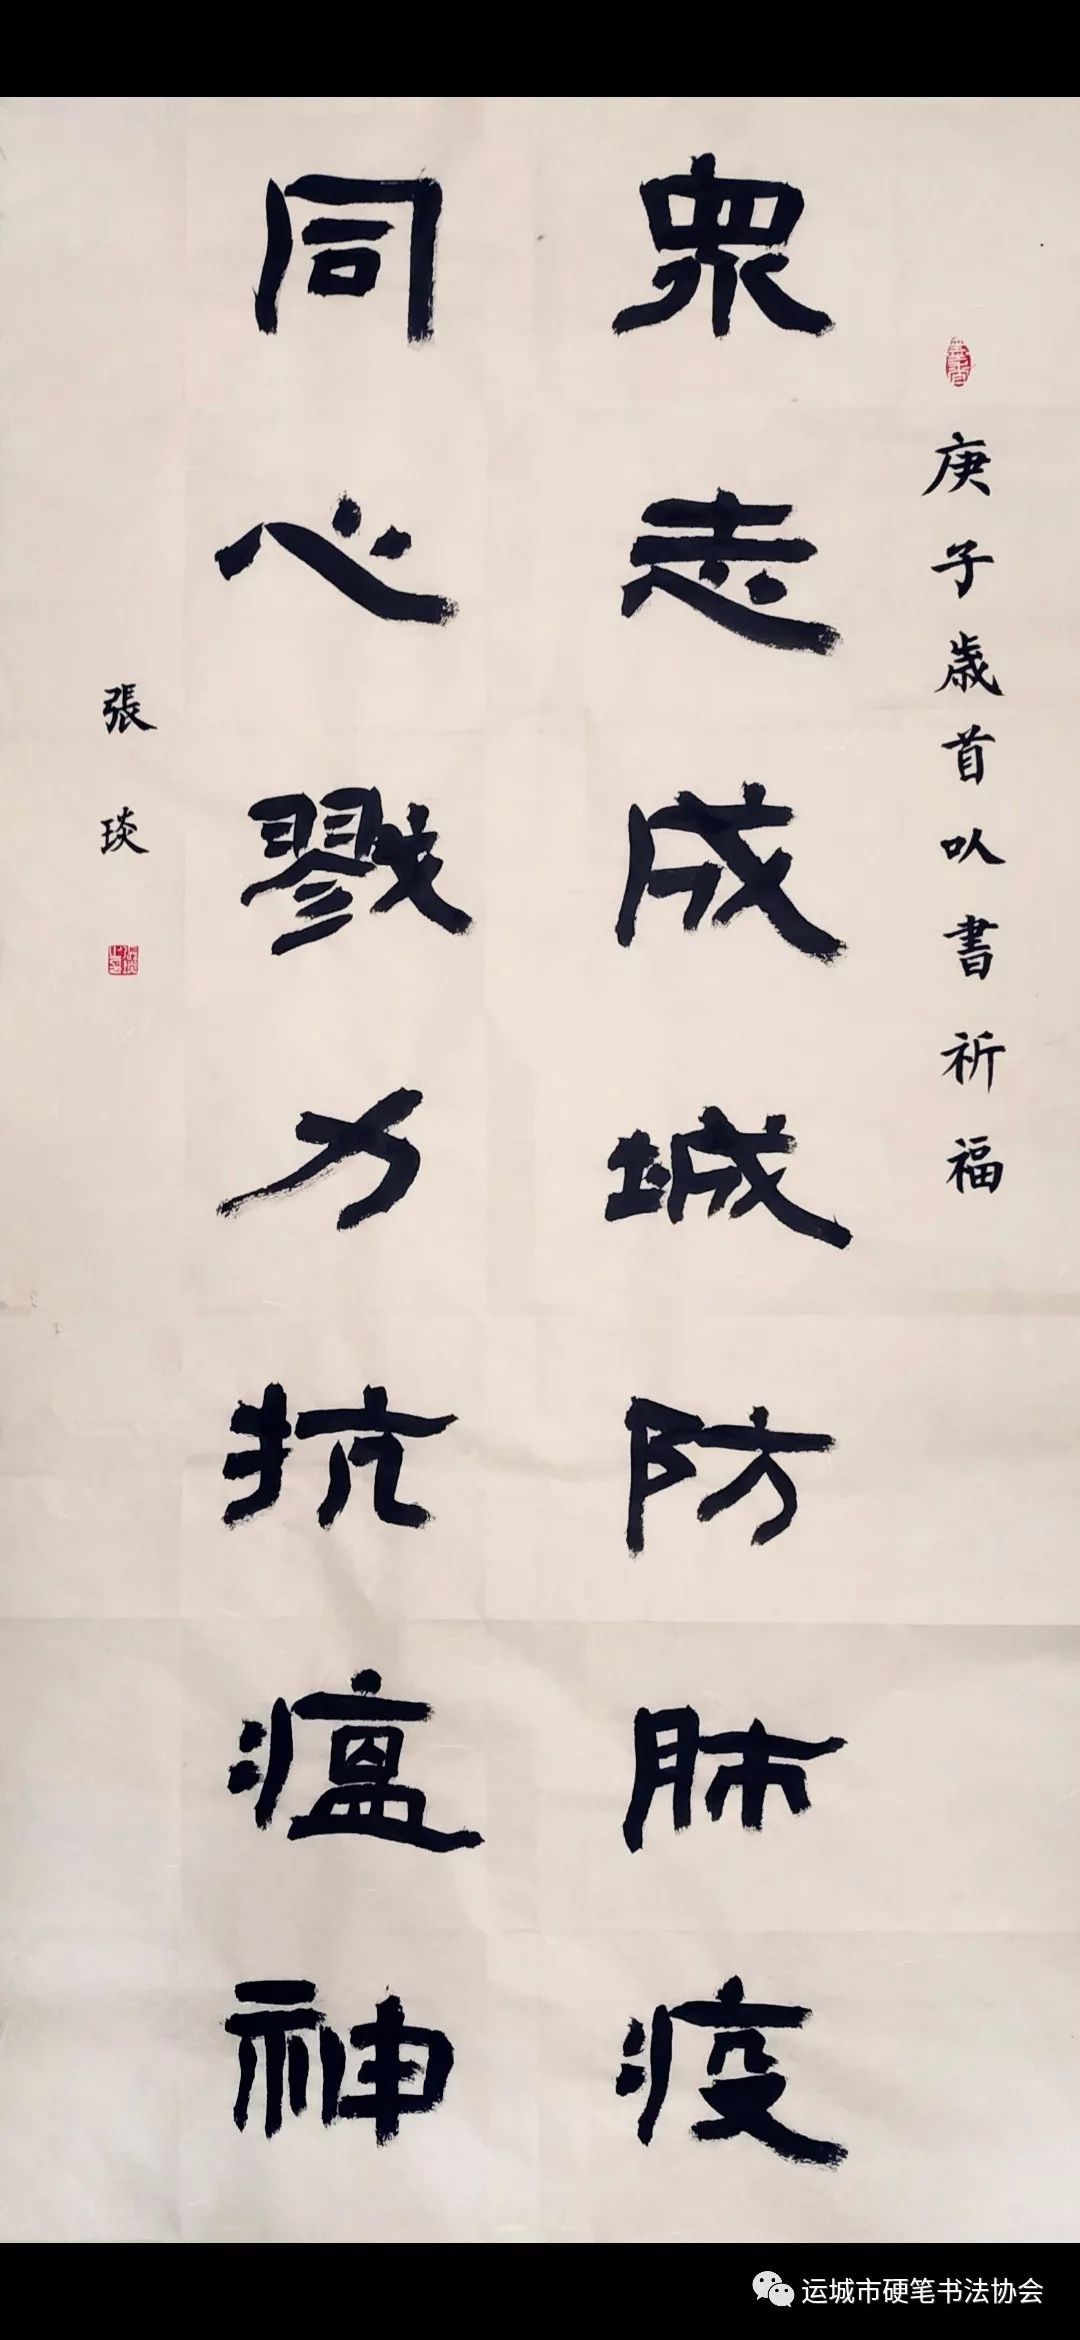 庚子歲首以書祈福
衆志成城防肺疫
同心戮力抗瘟神
張琰
运城市硬笔书法协会